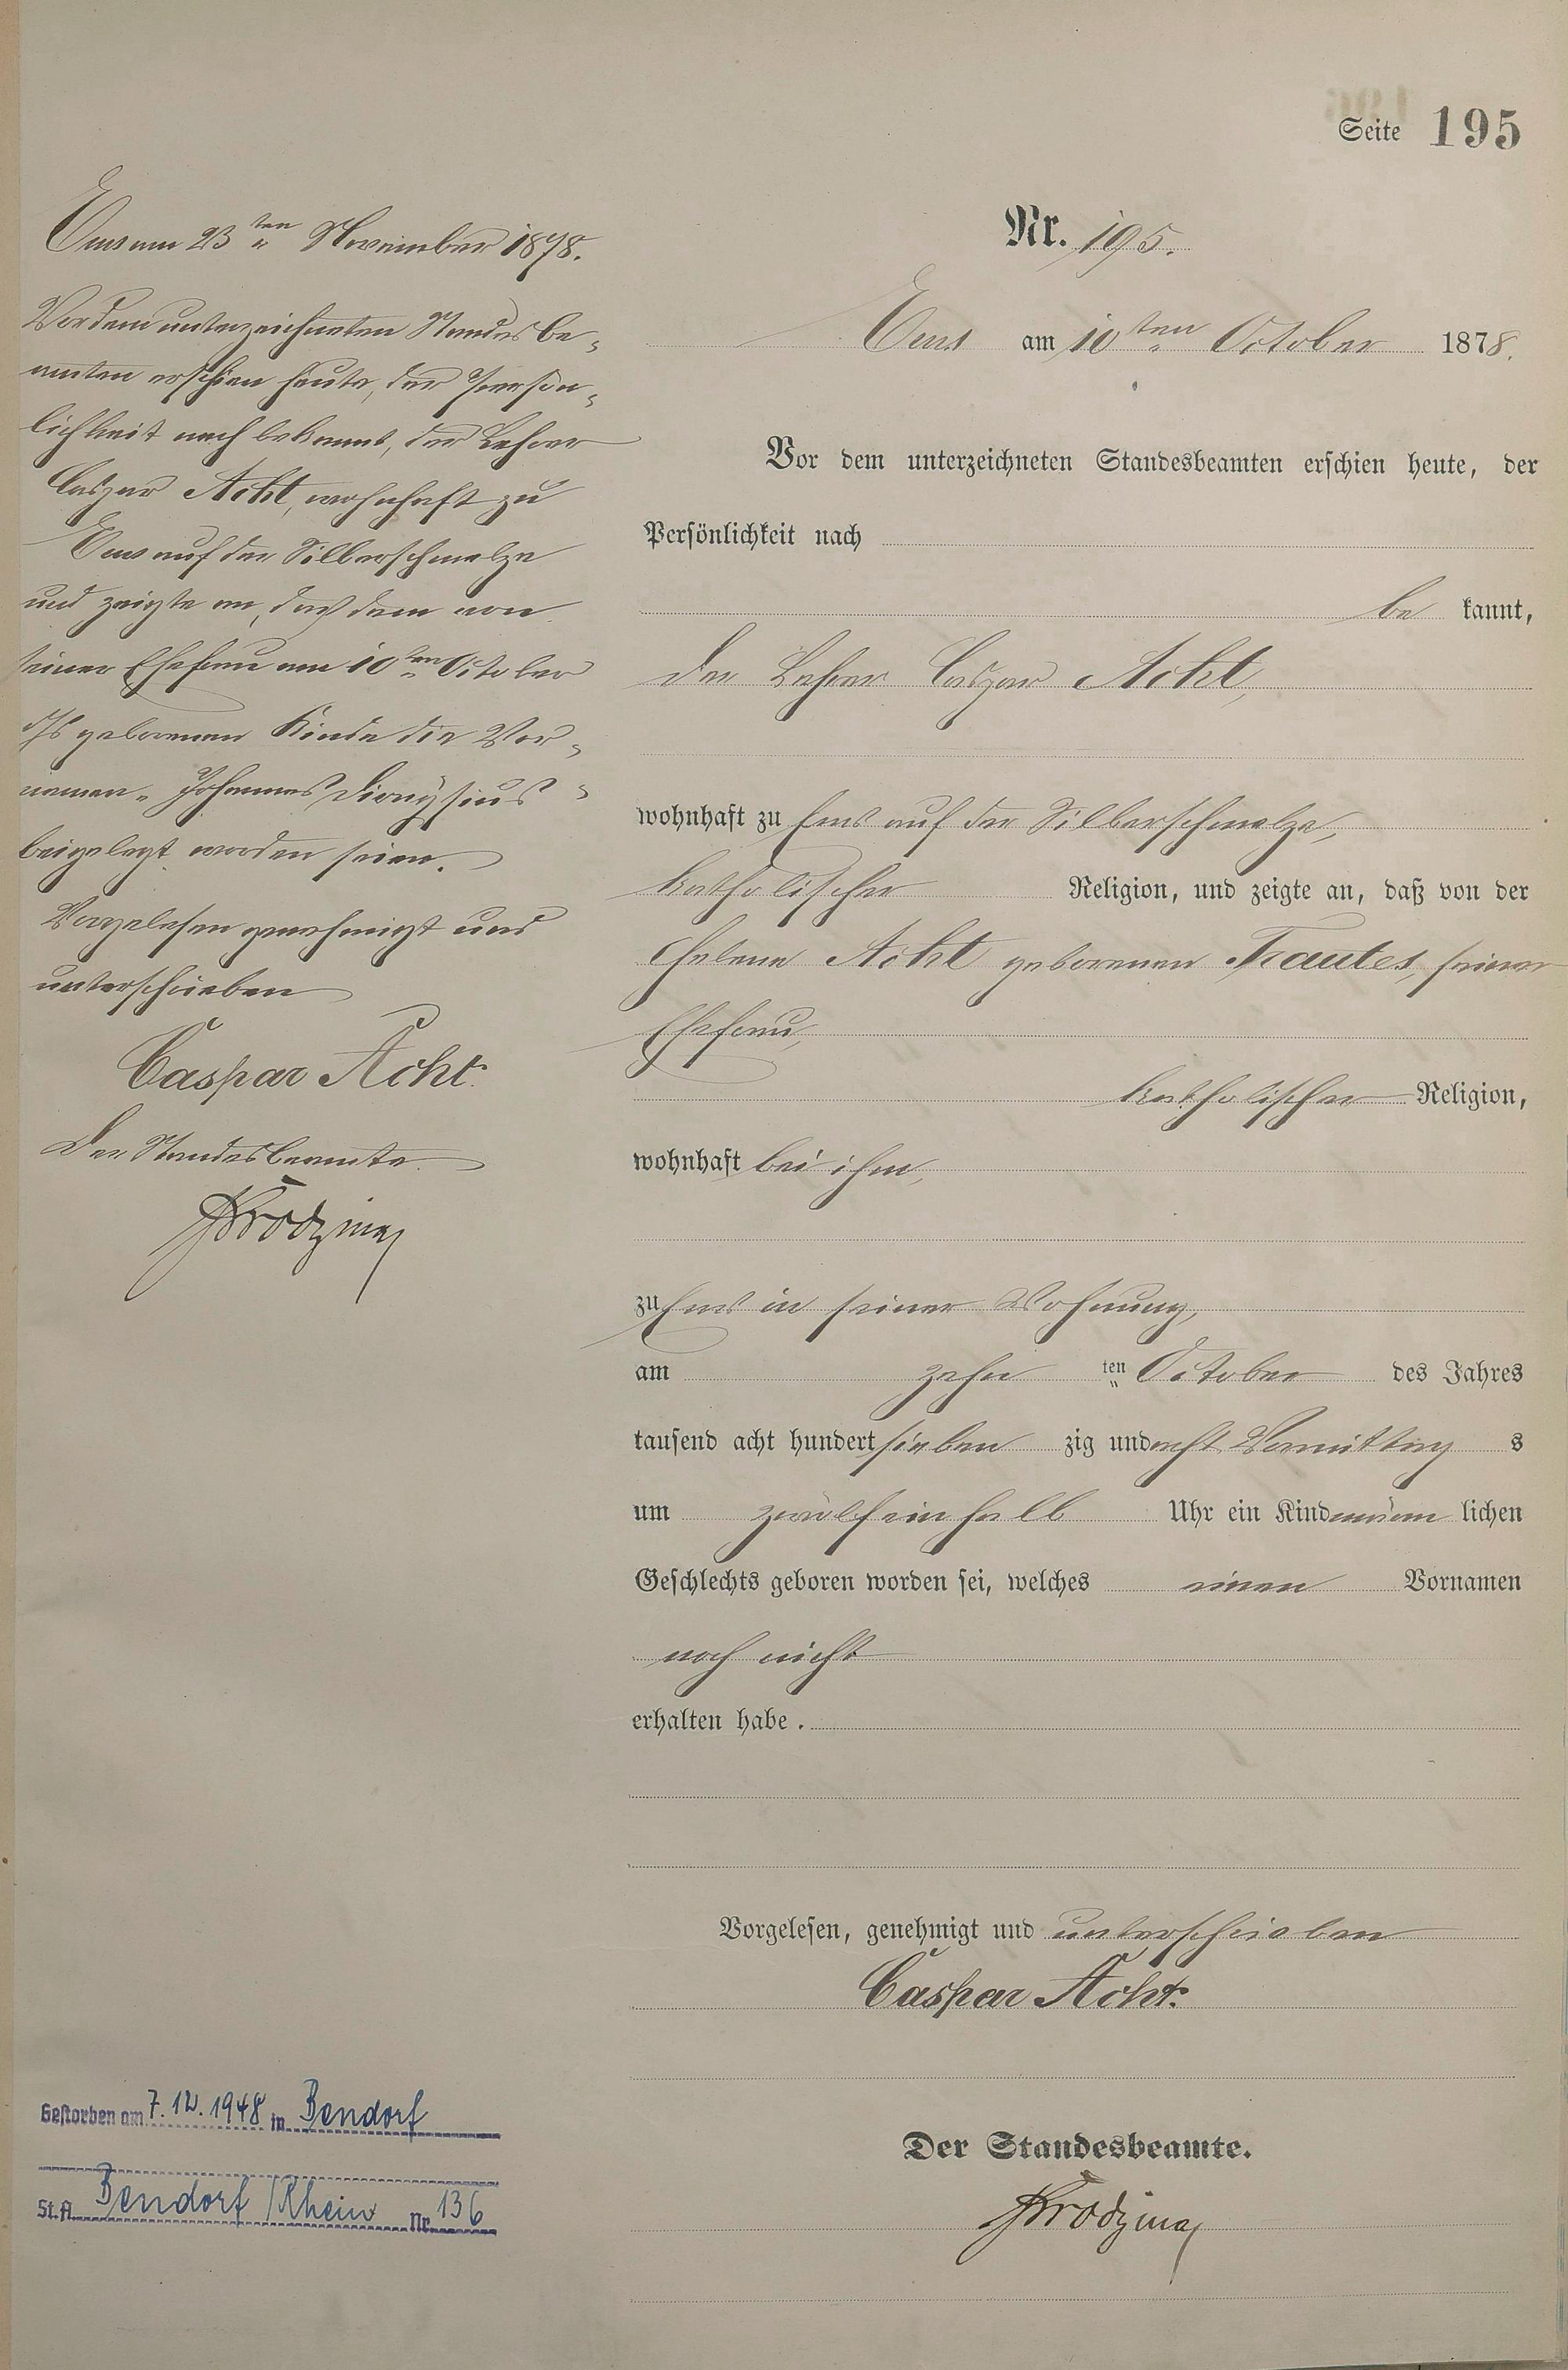 Seite 195
Nr. 195.
Ems am 10ten October 1878.
Vor dem unterzeichneten Standesbeamten erschien heute, der
Persönlichkeit nach
bekannt,
der Lehrer Caspar Acht,
wohnhaft zu Ems auf der Silberschmelze,
katholischer Religion, und zeigte an, daß von der
Helena Acht geborenen Trautes, seiner
Ehefrau,
katholischer Religion,
wohnhaft bei ihm,
zu Ems in seiner Wohnung,
am zehn ten October des Jahres
tausend acht hundert sieben zig und acht Vormittag s
um zwölf ein halb Uhr ein Kind männ lichen
Geschlechts geboren worden sei, welches einen Vornamen
noch nicht
erhalten habe.
Vorgelesen, genehmigt und unterschrieben
Caspar Acht.
Der Standesbeamte.
Ems am 23ten November 1878.
Vor dem unterzeichneten Standesbe-
amten erschien heute, der Persön-
lichkeit nach bekannt, der Lehrer
Caspar Acht, wohnhaft zu
Ems auf der Silberschmelze
und zeigte an, daß dem von
seiner Ehefrau am 10ten October
ds Js geborenen Kinde die Vor-
namen "Johannes Dionysius"
beigelegt worden seien.
Vorgelesen genehmigt und
unterschrieben
Caspar Acht.
Der Standesbeamte.
Gestorben am 7.12.1948 in Bendorf
St.A. Bendorf/Rhein Nr. 136